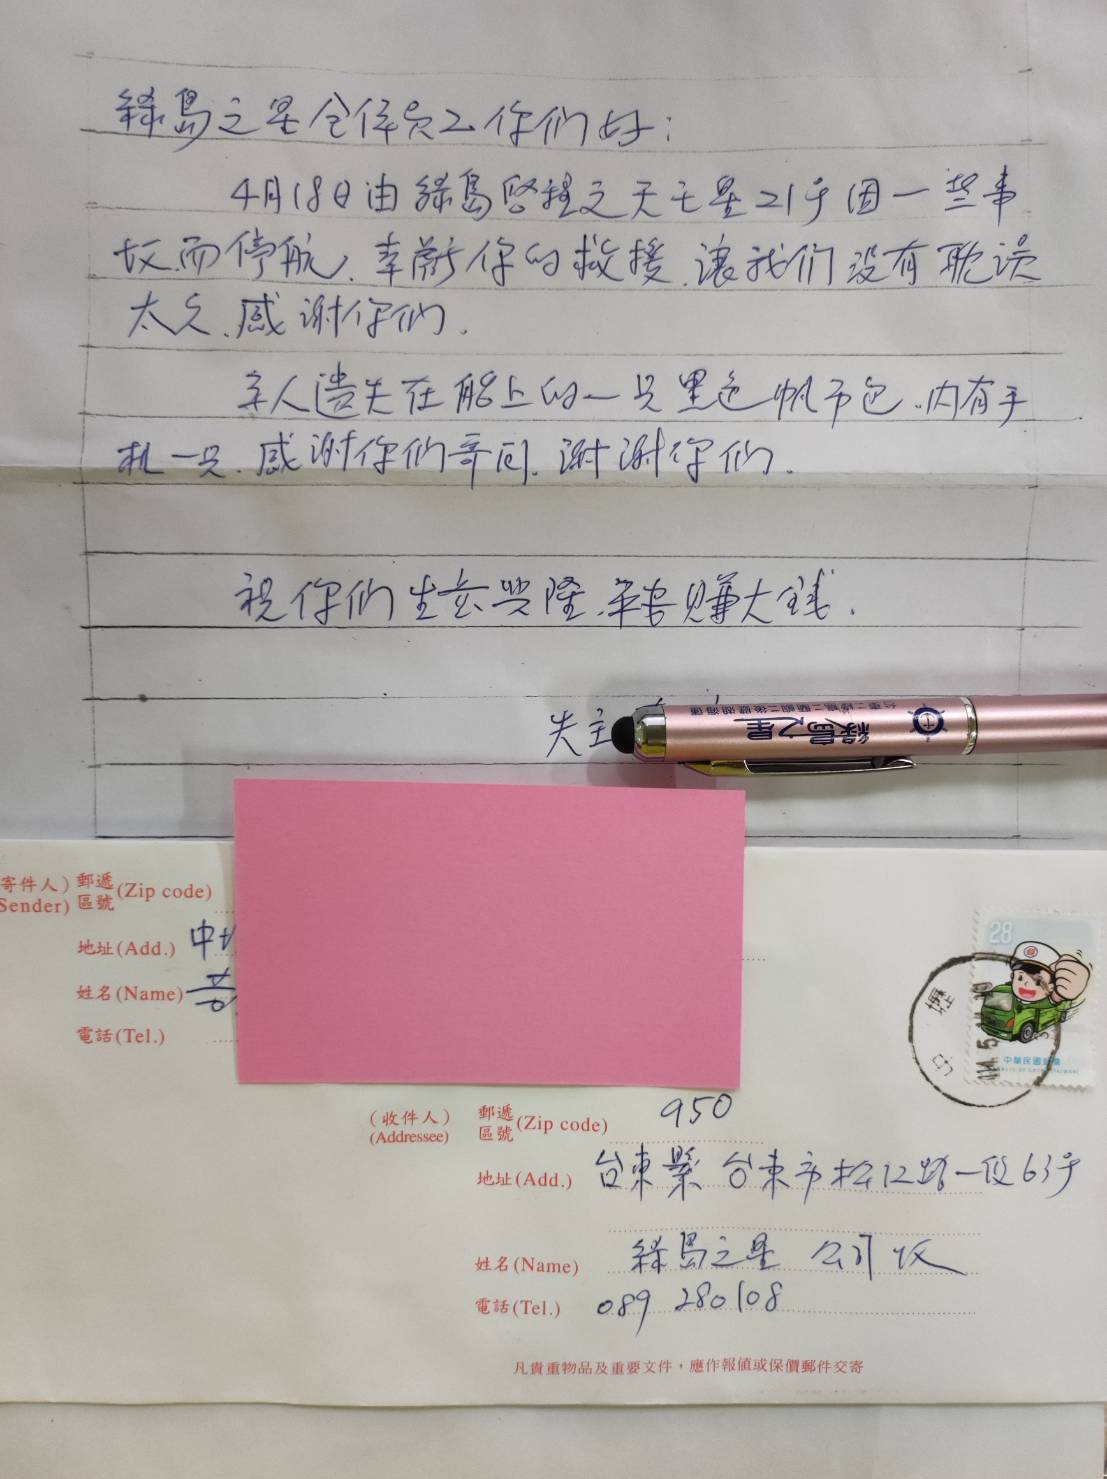 綠島之星全体員工你們好：
4月18日由綠島啓程之天王星21号因一些事
故而停航、幸蒙你的救援、讓我们没有耽误
太久、感谢你们、
本人遗失在船上的一只黑色帆布包、内有手
机一只、感谢你们寄回、谢谢你们、
祝你们生意興隆、年年賺大钱、
失主
綠島之星
(寄件人) 郵遞區號 (Zip code)
Sender)
地址(Add.) 中
姓名(Name) 黃
電話(Tel.)
28
中華民國郵票
中壢
(收件人) 郵遞區號 (Zip code) 950
(Addressee)
地址(Add.) 台東縣 台東市松江路一段63号
姓名(Name) 綠島之星 公司 收
電話(Tel.) 089 280108
凡貴重物品及重要文件，應作報值或保價郵件交寄